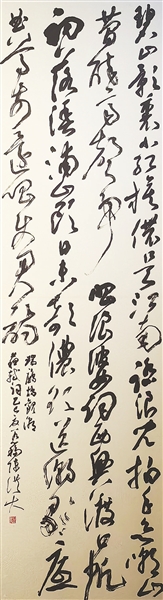 碧山影裏小紅旗儂是江南踏浪兒拍手欲嘲山
簡醉齊聲爭唱浪婆詞西興渡口帆
初落漁浦山頭日未欹儂欲送潮歌底
曲尊前還唱使君詩
瑞鷓鴣觀潮
蘇軾詞